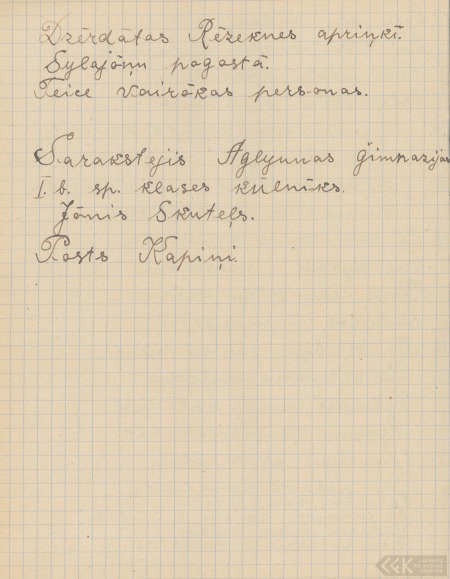 Dzērdātas Rēzeknes apriņķī.
Sylajōņu pogostā.
Teice vairōkas personas.
Sarakstejis Aglyunas ģimnazijas
I. b. sp. klases kūlnīks.
Jōnis Skuteļs.
Posts Kapiņi.